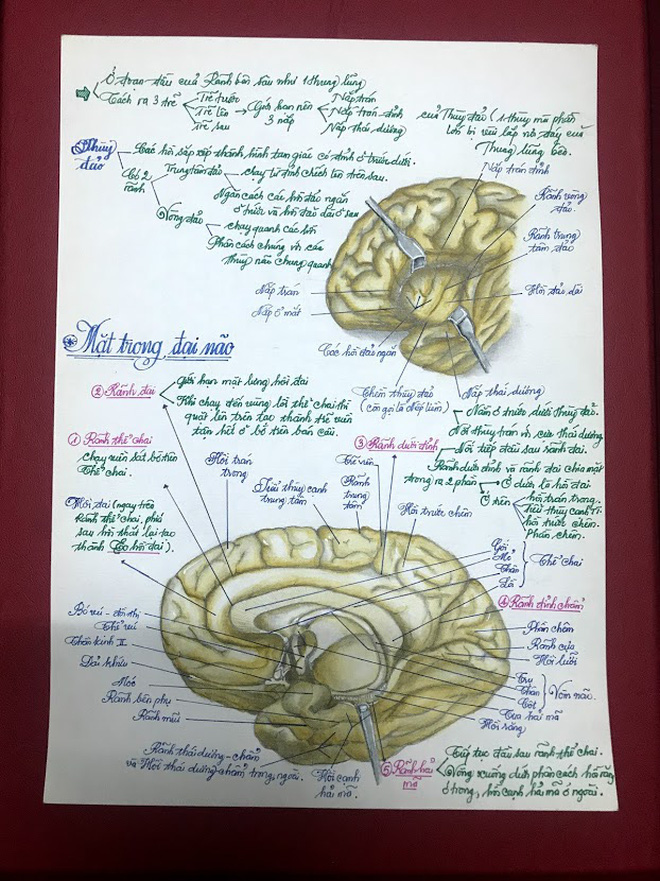 Ở đoạn đầu của Rãnh bên sâu như 1 thung lũng
Tách ra 3 trẽ
Trẽ trước
Trẽ lên
Trẽ sau
Giới hạn nên
3 nắp
Nắp trán
Nắp trán đỉnh
Nắp thái dương
của Thùy đảo (1 thùy mà phần
lớn bị vùi lấp nơ đáy của
Thung lũng bên.
Thùy
đảo
Các hồi sắp xếp thành hình tam giác có đỉnh ở trước dưới.
Có 2
rãnh
Trung tâm đảo
chạy từ đỉnh chếch lên trên sau.
Ngăn cách các hồi đảo ngắn
ở trước và hồi đảo dài ở sau
Vòng đảo
chạy quanh các hồi
Phân cách chúng với các
thùy não chung quanh
Nắp trán đỉnh
Rãnh vòng
đảo.
Rãnh trung
tâm đảo
Hồi đảo dài
Nắp trán
Nắp ổ mắt
Các hồi đảo ngắn
Thềm thùy đảo
(còn gọi là Nếp liềm)
Nắp thái dương
Nằm ở trước dưới thùy đảo.
Nối thùy trán với cực thái dương
Mặt trong đại não
② Rãnh đai
Giới hạn mặt lưng hồi đai
Khi chạy đến vùng lồi thể chai thì
quặt lên trên tạo thành trẽ viền
tận hết ở bờ trên bán cầu.
① Rãnh thể chai
chạy viền sát bờ trên
Thể chai.
③ Rãnh dưới đỉnh
Nối tiếp đầu sau rãnh đai.
Rãnh dưới đỉnh và rãnh đai chia mặt
trong ra 2 phần
Ở dưới là hồi đai
Ở trên
hồi trán trong.
tiểu thùy cạnh TT.
hồi trước chêm.
Phần chêm.
Hồi đai (ngay trên
Rãnh thể chai, phía
sau hồi thắt lại tạo
thành Eo hồi đai).
Hồi trán
trong
Tiểu thùy cạnh
trung tâm
Trẽ viền
Rãnh
trung
tâm
Hồi trước chêm
Gối
Mỏ
Thân
Lồi
Thể chai
④ Rãnh đỉnh chẩm
Phần chêm
Rãnh cựa
Hồi lưỡi
Trụ
Thân
Cột
Vòm não.
Tua hải mã
Hồi răng
Bó vú - đồi thị
Thể vú
Thần kinh II
Dải khứu
Móc
Rãnh bên phụ
Rãnh mũi
Rãnh thái dương - chẩm
và Hồi thái dương - chẩm trong, ngoài.
Hồi cạnh
hải mã.
⑤ Rãnh hải
mã
Tiếp tục đầu sau rãnh thể chai.
Vòng xuống dưới phân cách hồi răng
ở trong, hồi cạnh hải mã ở ngoài.